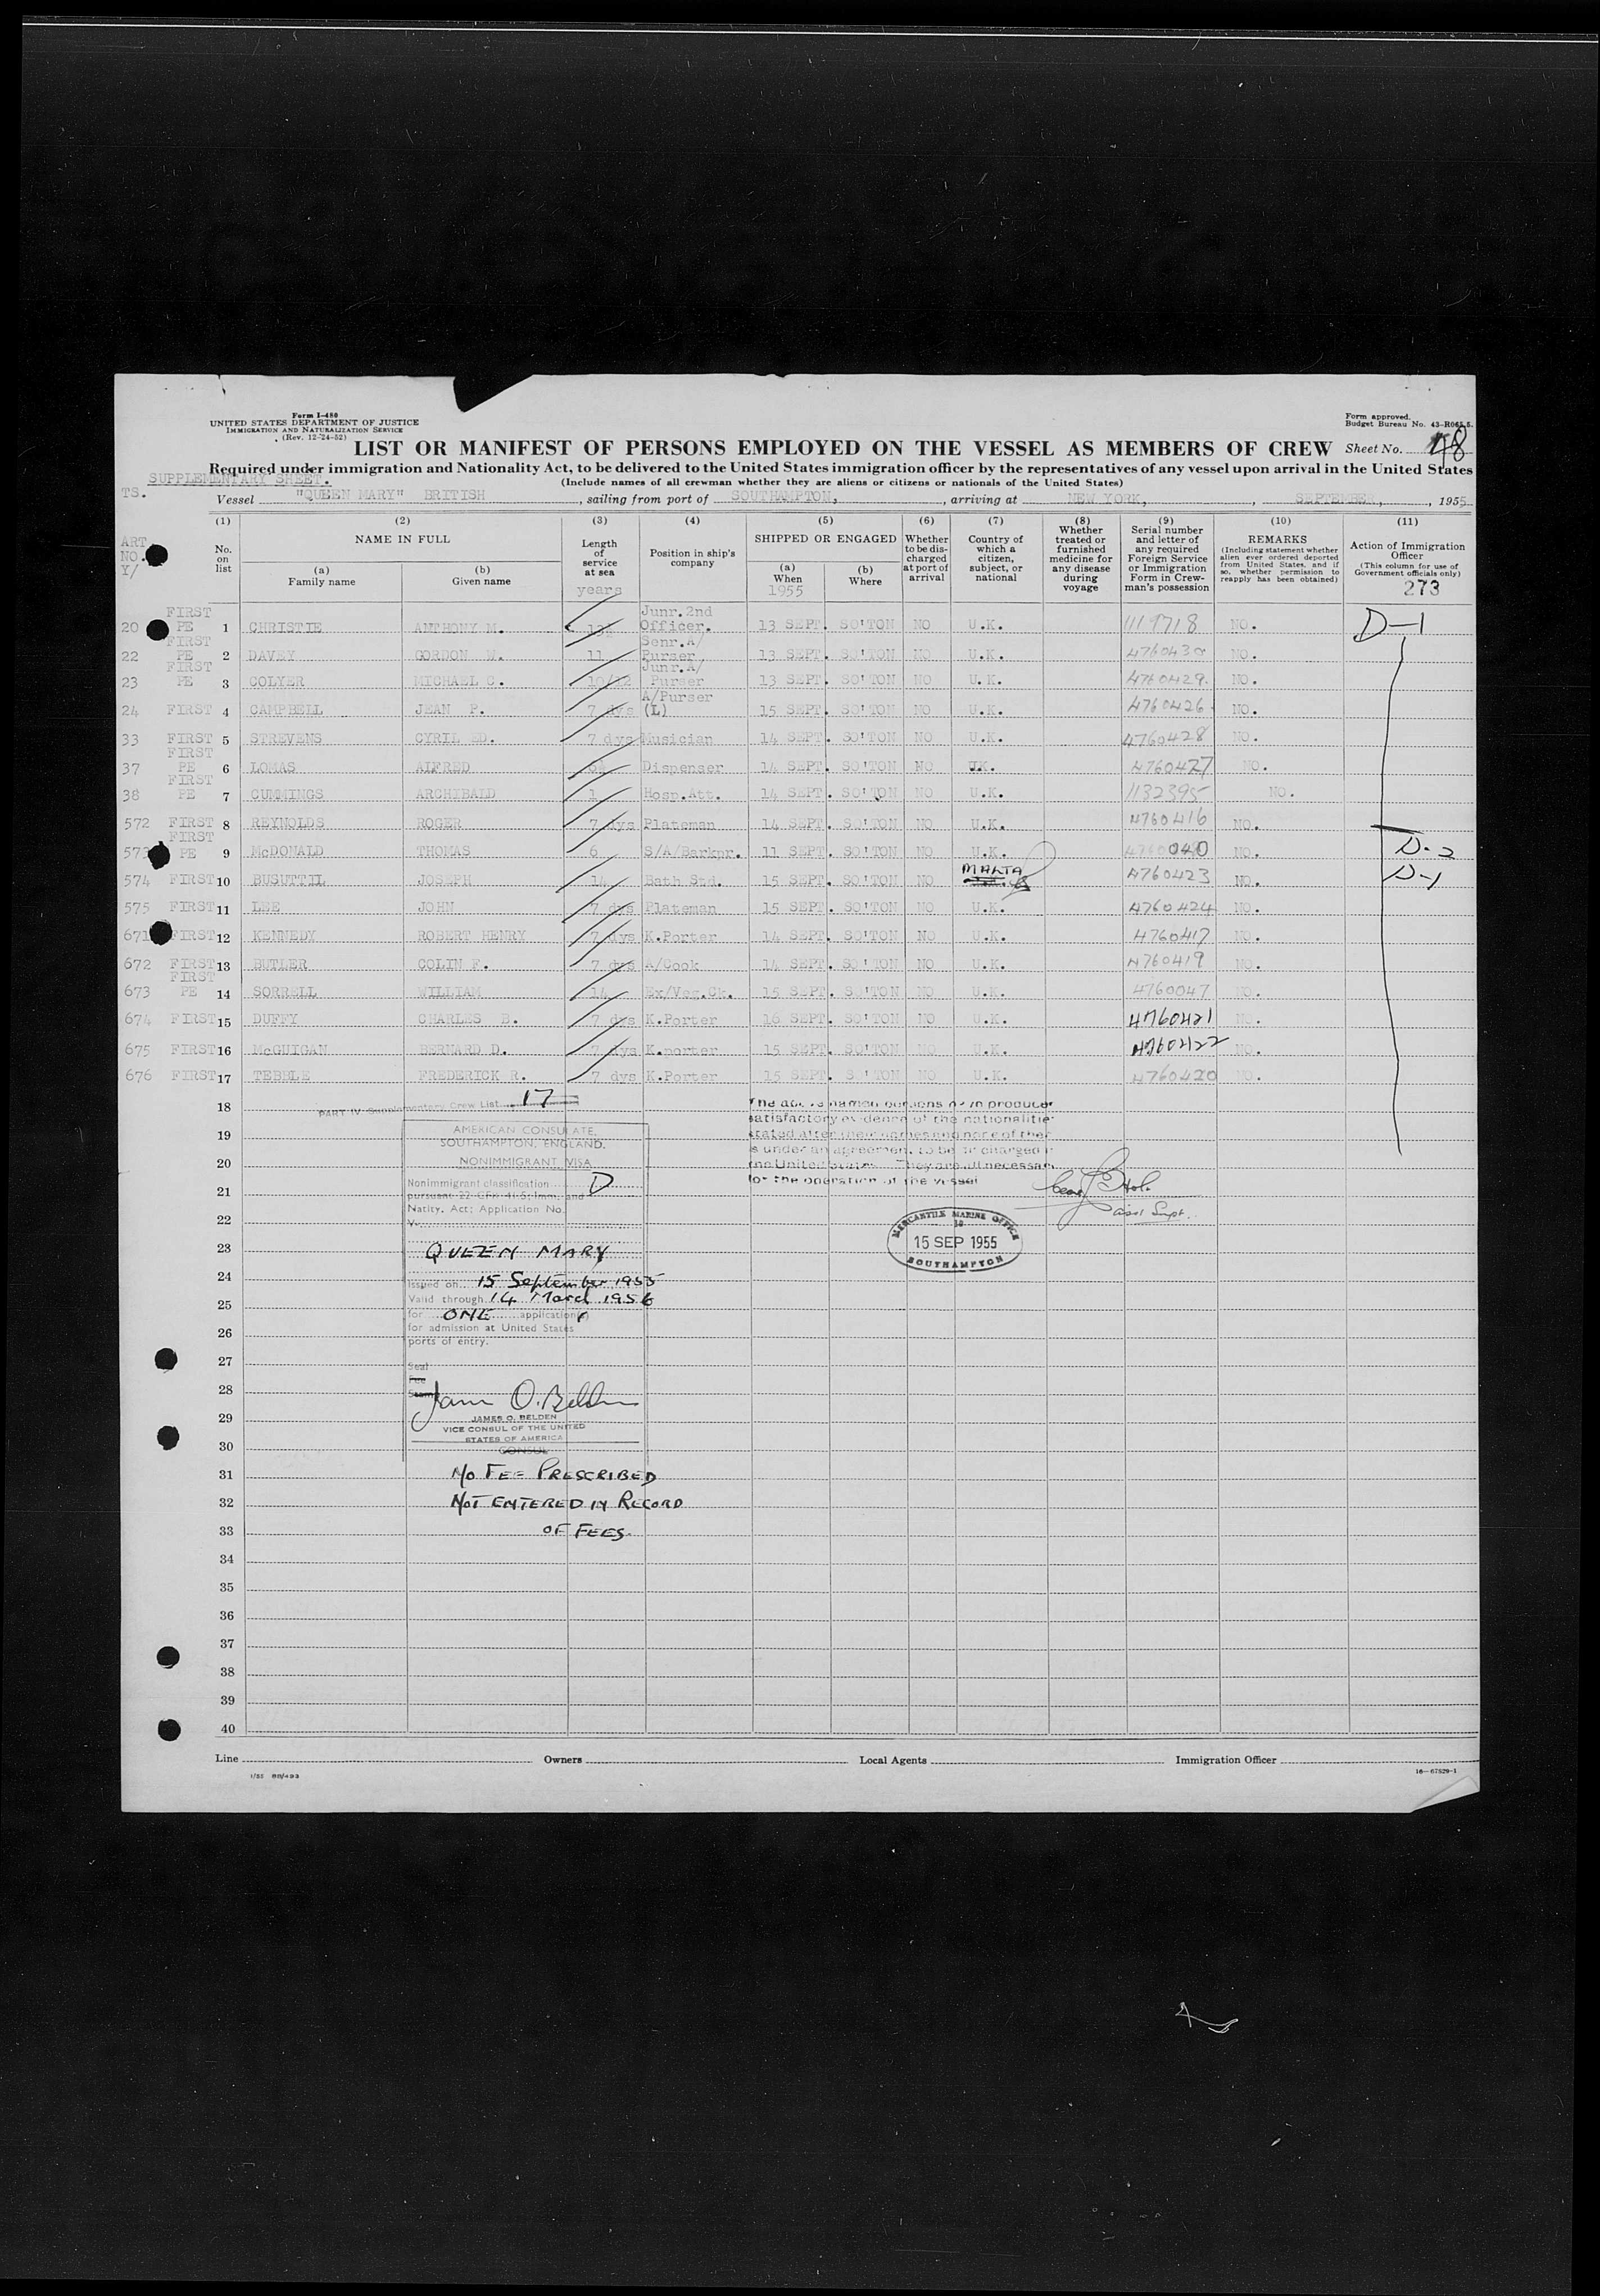 Form I-480
UNITED STATES DEPARTMENT OF JUSTICE
IMMIGRATION AND NATURALIZATION SERVICE
(Rev. 12-24-52)
Form approved.
Budget Bureau No. 43-R065.5.
LIST OR MANIFEST OF PERSONS EMPLOYED ON THE VESSEL AS MEMBERS OF CREW Sheet No. 48
Required under immigration and Nationality Act, to be delivered to the United States immigration officer by the representatives of any vessel upon arrival in the United States
SUPPLEMENTARY SHEET.
(Include names of all crewman whether they are aliens or citizens or nationals of the United States)
TS.
Vessel "QUEEN MARY" BRITISH, sailing from port of SOUTHAMPTON, arriving at NEW YORK, SEPTEMBER, 1955
(1) (2) (3) (4) (5) (6) (7) (8) (9) (10) (11)
ART NO. Y/
No. on list
NAME IN FULL
(a) Family name
(b) Given name
Length of service at sea
years
Position in ship's company
SHIPPED OR ENGAGED
(a) When
1955
(b) Where
Whether to be discharged at port of arrival
Country of which a citizen, subject, or national
Whether treated or furnished medicine for any disease during voyage
Serial number and letter of any required Foreign Service or Immigration Form in Crewman's possession
REMARKS
(Including statement whether alien ever ordered deported from United States, and if so, whether permission to reapply has been obtained)
Action of Immigration Officer
(This column for use of Government officials only)
273
20 FIRST PE 1 CHRISTIE ANTHONY M. 13½ Junr.2nd Officer. 13 SEPT. SO'TON NO U.K. 1119718 NO. D-1
22 FIRST PE 2 DAVEY GORDON W. 11 Senr.A/ Purser 13 SEPT. SO'TON NO U.K. 4760430 NO.
23 FIRST PE 3 COLYER MICHAEL C. 10/12 Junr.A/ Purser 13 SEPT. SO'TON NO U.K. 4760429. NO.
24 FIRST 4 CAMPBELL JEAN P. 7 dys A/Purser (L) 15 SEPT. SO'TON NO U.K. 4760426 NO.
33 FIRST 5 STREVENS CYRIL ED. 7 dys Musician 14 SEPT. SO'TON NO U.K. 4760428 NO.
37 FIRST PE 6 LOMAS ALFRED Dispenser 14 SEPT. SO'TON NO UK. 4760427 NO.
38 FIRST PE 7 CUMMINGS ARCHIBALD 1 Hosp.Att. 14 SEPT. SO'TON NO U.K. 1132395 NO.
572 FIRST 8 REYNOLDS ROGER 7 dys Plateman 14 SEPT. SO'TON NO U.K. 4760416 NO.
573 FIRST PE 9 McDONALD THOMAS 6 S/A/Barkpr. 11 SEPT. SO'TON NO U.K. 4760040 NO. D-2
574 FIRST 10 BUSUTTIL JOSEPH 14 Bath Std. 15 SEPT. SO'TON NO MALTA 4760423 NO. D-1
575 FIRST 11 LEE JOHN 7 dys Plateman 15 SEPT. SO'TON NO U.K. 4760424 NO.
671 FIRST 12 KENNEDY ROBERT HENRY 7 dys K.Porter 14 SEPT. SO'TON NO U.K. 4760417 NO.
672 FIRST 13 BUTLER COLIN F. 7 dys A/Cook 14 SEPT. SO'TON NO U.K. 4760419 NO.
673 FIRST PE 14 SORRELL WILLIAM 14 Ex/Veg.Ck. 15 SEPT. SO'TON NO U.K. 4760047 NO.
674 FIRST 15 DUFFY CHARLES B. 7 dys K.Porter 16 SEPT. SO'TON NO U.K. 4760421 NO.
675 FIRST 16 McGUIGAN BERNARD D. 7 dys K.porter 15 SEPT. SO'TON NO U.K. 4760422 NO.
676 FIRST 17 TEBBLE FREDERICK R. 7 dys K.Porter 15 SEPT. SO'TON NO U.K. 4760420 NO.
18
PART IV Supplementary Crew List 17
19
20
21
22
23
24
25
26
27
28
29
30
31
32
33
34
35
36
37
38
39
40
AMERICAN CONSULATE,
SOUTHAMPTON, ENGLAND.
NONIMMIGRANT VISA
Nonimmigrant classification D
pursuant 22 CFR 41.5; Imm. and
Natity. Act; Application No.
V.
QUEEN MARY
Issued on 15 September 1955
Valid through 14 March 1956
for ONE application(s)
for admission at United States
ports of entry.
Seal
Fee
Stamp
James O. Belden
JAMES O. BELDEN
VICE CONSUL OF THE UNITED
STATES OF AMERICA
CONSUL
NO FEE PRESCRIBED
NOT ENTERED IN RECORD
OF FEES.
The above named persons have produced
satisfactory evidence of the nationalities
stated after their names and none of them
is under an agreement to be discharged in
the United States. They are all necessary
for the operation of the vessel
Asst Supt.
MERCANTILE MARINE OFFICE
15 SEP 1955
SOUTHAMPTON
Line Owners Local Agents Immigration Officer
16—67829-1